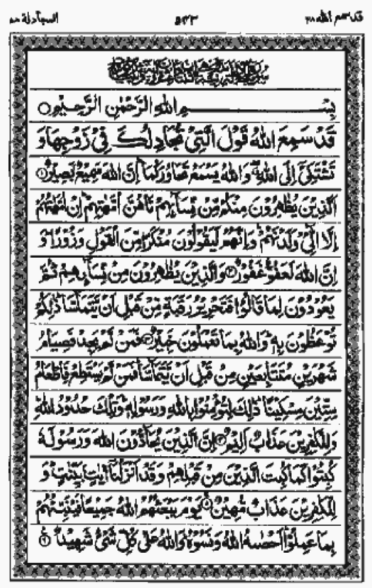 قد سمع الله ٢٨
٥٤٣
المجادلة ٥٨
بِسْمِ اللهِ الرَّحْمٰنِ الرَّحِيْمِ
قَدْ سَمِعَ اللهُ قَوْلَ الَّتِيْ تُجَادِلُكَ فِيْ زَوْجِهَا وَ
تَشْتَكِيْٓ اِلَى اللهِ وَاللهُ يَسْمَعُ تَحَاوُرَكُمَا اِنَّ اللهَ سَمِيْعٌ بَصِيْرٌ ١
اَلَّذِيْنَ يُظٰهِرُوْنَ مِنْكُمْ مِّنْ نِّسَآئِهِمْ مَّا هُنَّ اُمَّهٰتِهِمْ اِنْ اُمَّهٰتُهُمْ
اِلَّا الّٰٓـِٔيْ وَلَدْنَهُمْ وَاِنَّهُمْ لَيَقُوْلُوْنَ مُنْكَرًا مِّنَ الْقَوْلِ وَزُوْرًا وَ
اِنَّ اللهَ لَعَفُوٌّ غَفُوْرٌ ٢ وَالَّذِيْنَ يُظٰهِرُوْنَ مِنْ نِّسَآئِهِمْ ثُمَّ
يَعُوْدُوْنَ لِمَا قَالُوْا فَتَحْرِيْرُ رَقَبَةٍ مِّنْ قَبْلِ اَنْ يَّتَمَآسَّا ذٰلِكُمْ
تُوْعَظُوْنَ بِهٖ وَاللهُ بِمَا تَعْمَلُوْنَ خَبِيْرٌ ٣ فَمَنْ لَّمْ يَجِدْ فَصِيَامُ
شَهْرَيْنِ مُتَتَابِعَيْنِ مِنْ قَبْلِ اَنْ يَّتَمَآسَّا فَمَنْ لَّمْ يَسْتَطِعْ فَاِطْعَامُ
سِتِّيْنَ مِسْكِيْنًا ذٰلِكَ لِتُؤْمِنُوْا بِاللهِ وَرَسُوْلِهٖ وَتِلْكَ حُدُوْدُ اللهِ
وَلِلْكٰفِرِيْنَ عَذَابٌ اَلِيْمٌ ٤ اِنَّ الَّذِيْنَ يُحَآدُّوْنَ اللهَ وَرَسُوْلَهٗ
كُبِتُوْا كَمَا كُبِتَ الَّذِيْنَ مِنْ قَبْلِهِمْ وَقَدْ اَنْزَلْنَآ اٰيٰتٍۭ بَيِّنٰتٍ وَ
لِلْكٰفِرِيْنَ عَذَابٌ مُّهِيْنٌ ٥ يَوْمَ يَبْعَثُهُمُ اللهُ جَمِيْعًا فَيُنَبِّئُهُمْ
بِمَا عَمِلُوْا اَحْصٰىهُ اللهُ وَنَسُوْهُ وَاللهُ عَلٰى كُلِّ شَيْءٍ شَهِيْدٌ ٦